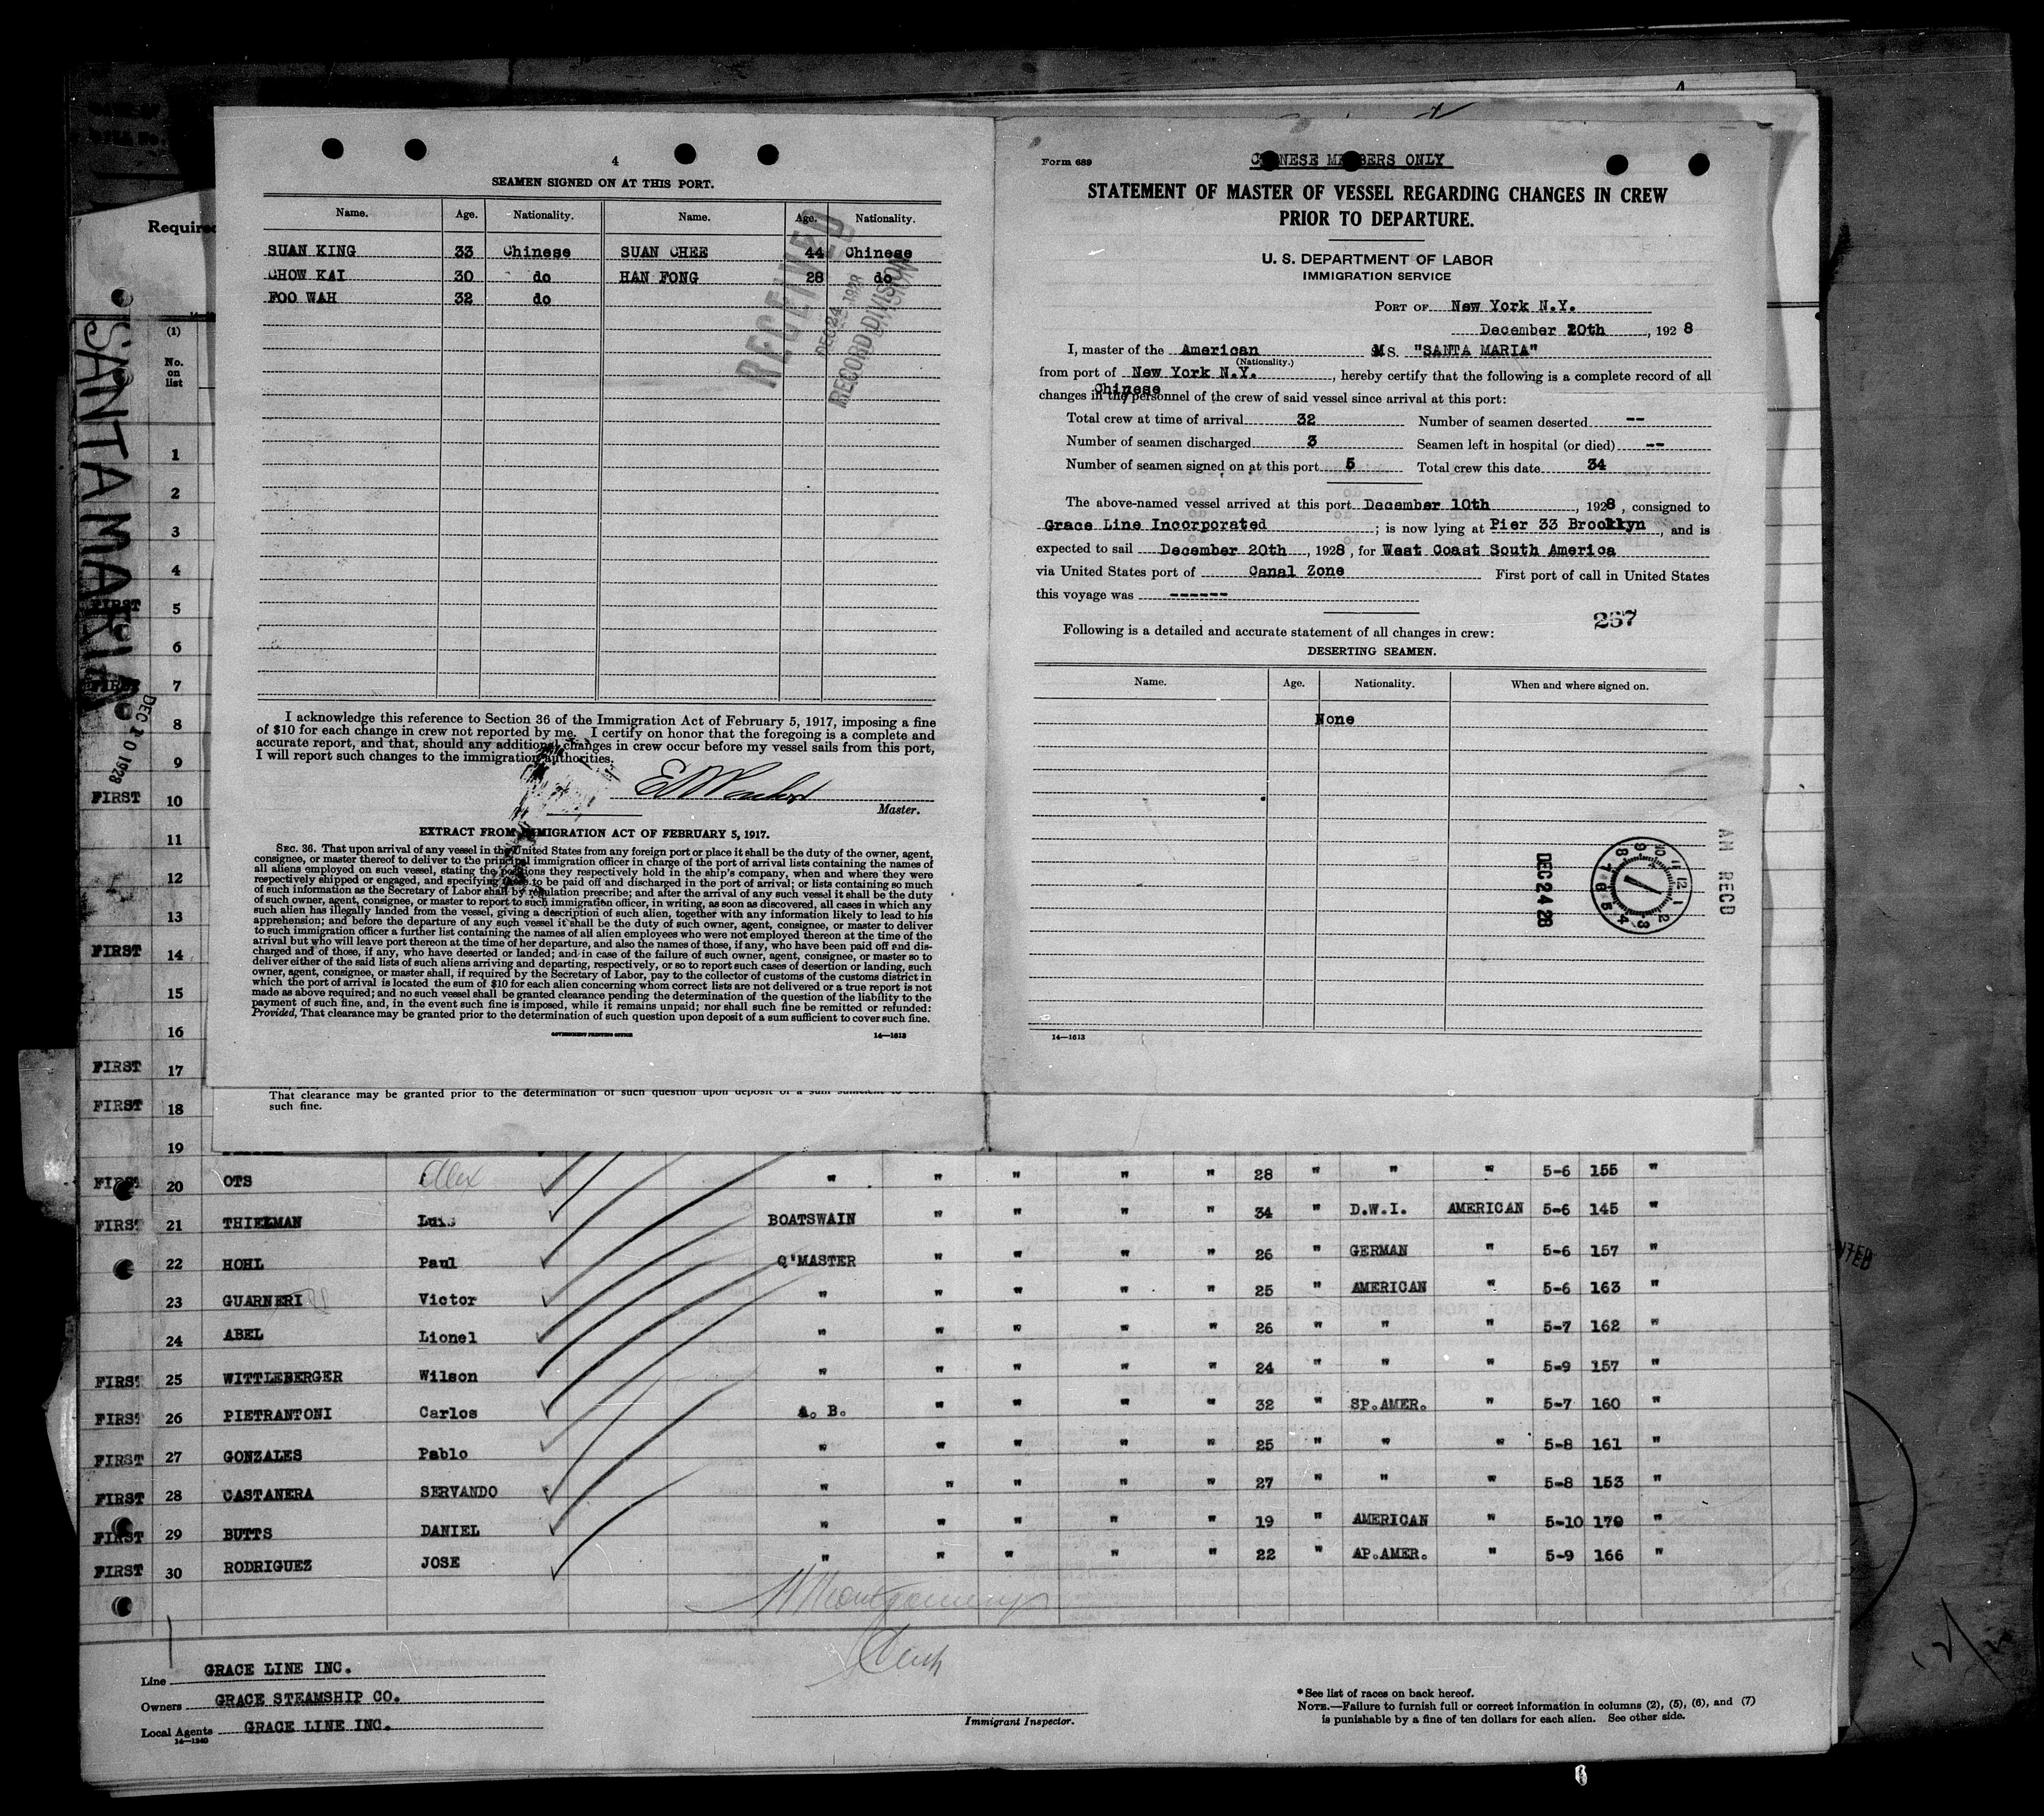 4
SEAMEN SIGNED ON AT THIS PORT.
Name. Age. Nationality. Name. Age. Nationality.
SUAN KING 33 Chinese SUAN CHEE 44 Chinese
CHOW KAI 30 do HAN FONG 28 do
FOO WAH 32 do
RECEIVED
DEC 24 1928
RECORD DIVISION
I acknowledge this reference to Section 36 of the Immigration Act of February 5, 1917, imposing a fine
of $10 for each change in crew not reported by me. I certify on honor that the foregoing is a complete and
accurate report, and that, should any additional changes in crew occur before my vessel sails from this port,
I will report such changes to the immigration authorities.
Master.
EXTRACT FROM IMMIGRATION ACT OF FEBRUARY 5, 1917.
SEC. 36. That upon arrival of any vessel in the United States from any foreign port or place it shall be the duty of the owner, agent,
consignee, or master thereof to deliver to the principal immigration officer in charge of the port of arrival lists containing the names of
all aliens employed on such vessel, stating the positions they respectively hold in the ship's company, when and where they were
respectively shipped or engaged, and specifying those to be paid off and discharged in the port of arrival; or lists containing so much
of such information as the Secretary of Labor shall by regulation prescribe; and after the arrival of any such vessel it shall be the duty
of such owner, agent, consignee, or master to report to such immigration officer, in writing, as soon as discovered, all cases in which any
such alien has illegally landed from the vessel, giving a description of such alien, together with any information likely to lead to his
apprehension; and before the departure of any such vessel it shall be the duty of such owner, agent, consignee, or master to deliver
to such immigration officer a further list containing the names of all alien employees who were not employed thereon at the time of the
arrival but who will leave port thereon at the time of her departure, and also the names of those, if any, who have been paid off and dis-
charged and of those, if any, who have deserted or landed; and in case of the failure of such owner, agent, consignee, or master so to
deliver either of the said lists of such aliens arriving and departing, respectively, or so to report such cases of desertion or landing, such
owner, agent, consignee, or master shall, if required by the Secretary of Labor, pay to the collector of customs of the customs district in
which the port of arrival is located the sum of $10 for each alien concerning whom correct lists are not delivered or a true report is not
made as above required; and no such vessel shall be granted clearance pending the determination of the question of the liability to the
payment of such fine, and, in the event such fine is imposed, while it remains unpaid; nor shall such fine be remitted or refunded:
Provided, That clearance may be granted prior to the determination of such question upon deposit of a sum sufficient to cover such fine.
GOVERNMENT PRINTING OFFICE 14—1613
That clearance may be granted prior to the determination of such question upon deposit of a sum sufficient to cover
such fine.
Form 689
CHINESE MEMBERS ONLY
STATEMENT OF MASTER OF VESSEL REGARDING CHANGES IN CREW
PRIOR TO DEPARTURE.
U. S. DEPARTMENT OF LABOR
IMMIGRATION SERVICE
PORT OF New York N.Y.
December 20th, 1928
I, master of the American MS. "SANTA MARIA"
(Nationality.)
from port of New York N.Y., hereby certify that the following is a complete record of all
Chinese
changes in the personnel of the crew of said vessel since arrival at this port:
Total crew at time of arrival 32 Number of seamen deserted --
Number of seamen discharged 3 Seamen left in hospital (or died) --
Number of seamen signed on at this port 5 Total crew this date 34
The above-named vessel arrived at this port December 10th, 1928, consigned to
Grace Line Incorporated; is now lying at Pier 33 Brooklyn, and is
expected to sail December 20th, 1928, for West Coast South America
via United States port of Canal Zone First port of call in United States
this voyage was ------
267
Following is a detailed and accurate statement of all changes in crew:
DESERTING SEAMEN.
Name. Age. Nationality. When and where signed on.
None
DEC 24 28
AN RECD
14—1613
Required
SANTA MARIA
DEC 10 1928
(1)
No.
on
list
1
2
3
4
FIRST 5
6
FIRST 7
8
9
FIRST 10
11
12
13
FIRST 14
15
16
FIRST 17
FIRST 18
19
FIRST 20 OTS Alex " " " " " 28 " " " 5-6 155 "
FIRST 21 THIELMAN Luis BOATSWAIN " " " " 34 " D.W.I. AMERICAN 5-6 145 "
22 HOHL Paul Q'MASTER " " " " 26 " GERMAN " 5-6 157 "
23 GUARNERI Victor " " " " " 25 " AMERICAN " 5-6 163 "
24 ABEL Lionel " " " " " 26 " " " 5-7 162 "
FIRST 25 WITTLEBERGER Wilson " " " " " 24 " " " 5-9 157 "
FIRST 26 PIETRANTONI Carlos A. B. " " " " 32 " SP.AMER. " 5-7 160 "
FIRST 27 GONZALES Pablo " " " " " 25 " " " 5-8 161 "
FIRST 28 CASTANERA SERVANDO " " " " " 27 " " " 5-8 153 "
FIRST 29 BUTTS DANIEL " " " " " 19 " AMERICAN " 5-10 170 "
FIRST 30 RODRIGUEZ JOSE " " " " " 22 " AP.AMER. " 5-9 166 "
Line GRACE LINE INC.
Owners GRACE STEAMSHIP CO.
Local Agents GRACE LINE INC.
14—1240
Immigrant Inspector.
* See list of races on back hereof.
NOTE.—Failure to furnish full or correct information in columns (2), (5), (6), and (7)
is punishable by a fine of ten dollars for each alien. See other side.